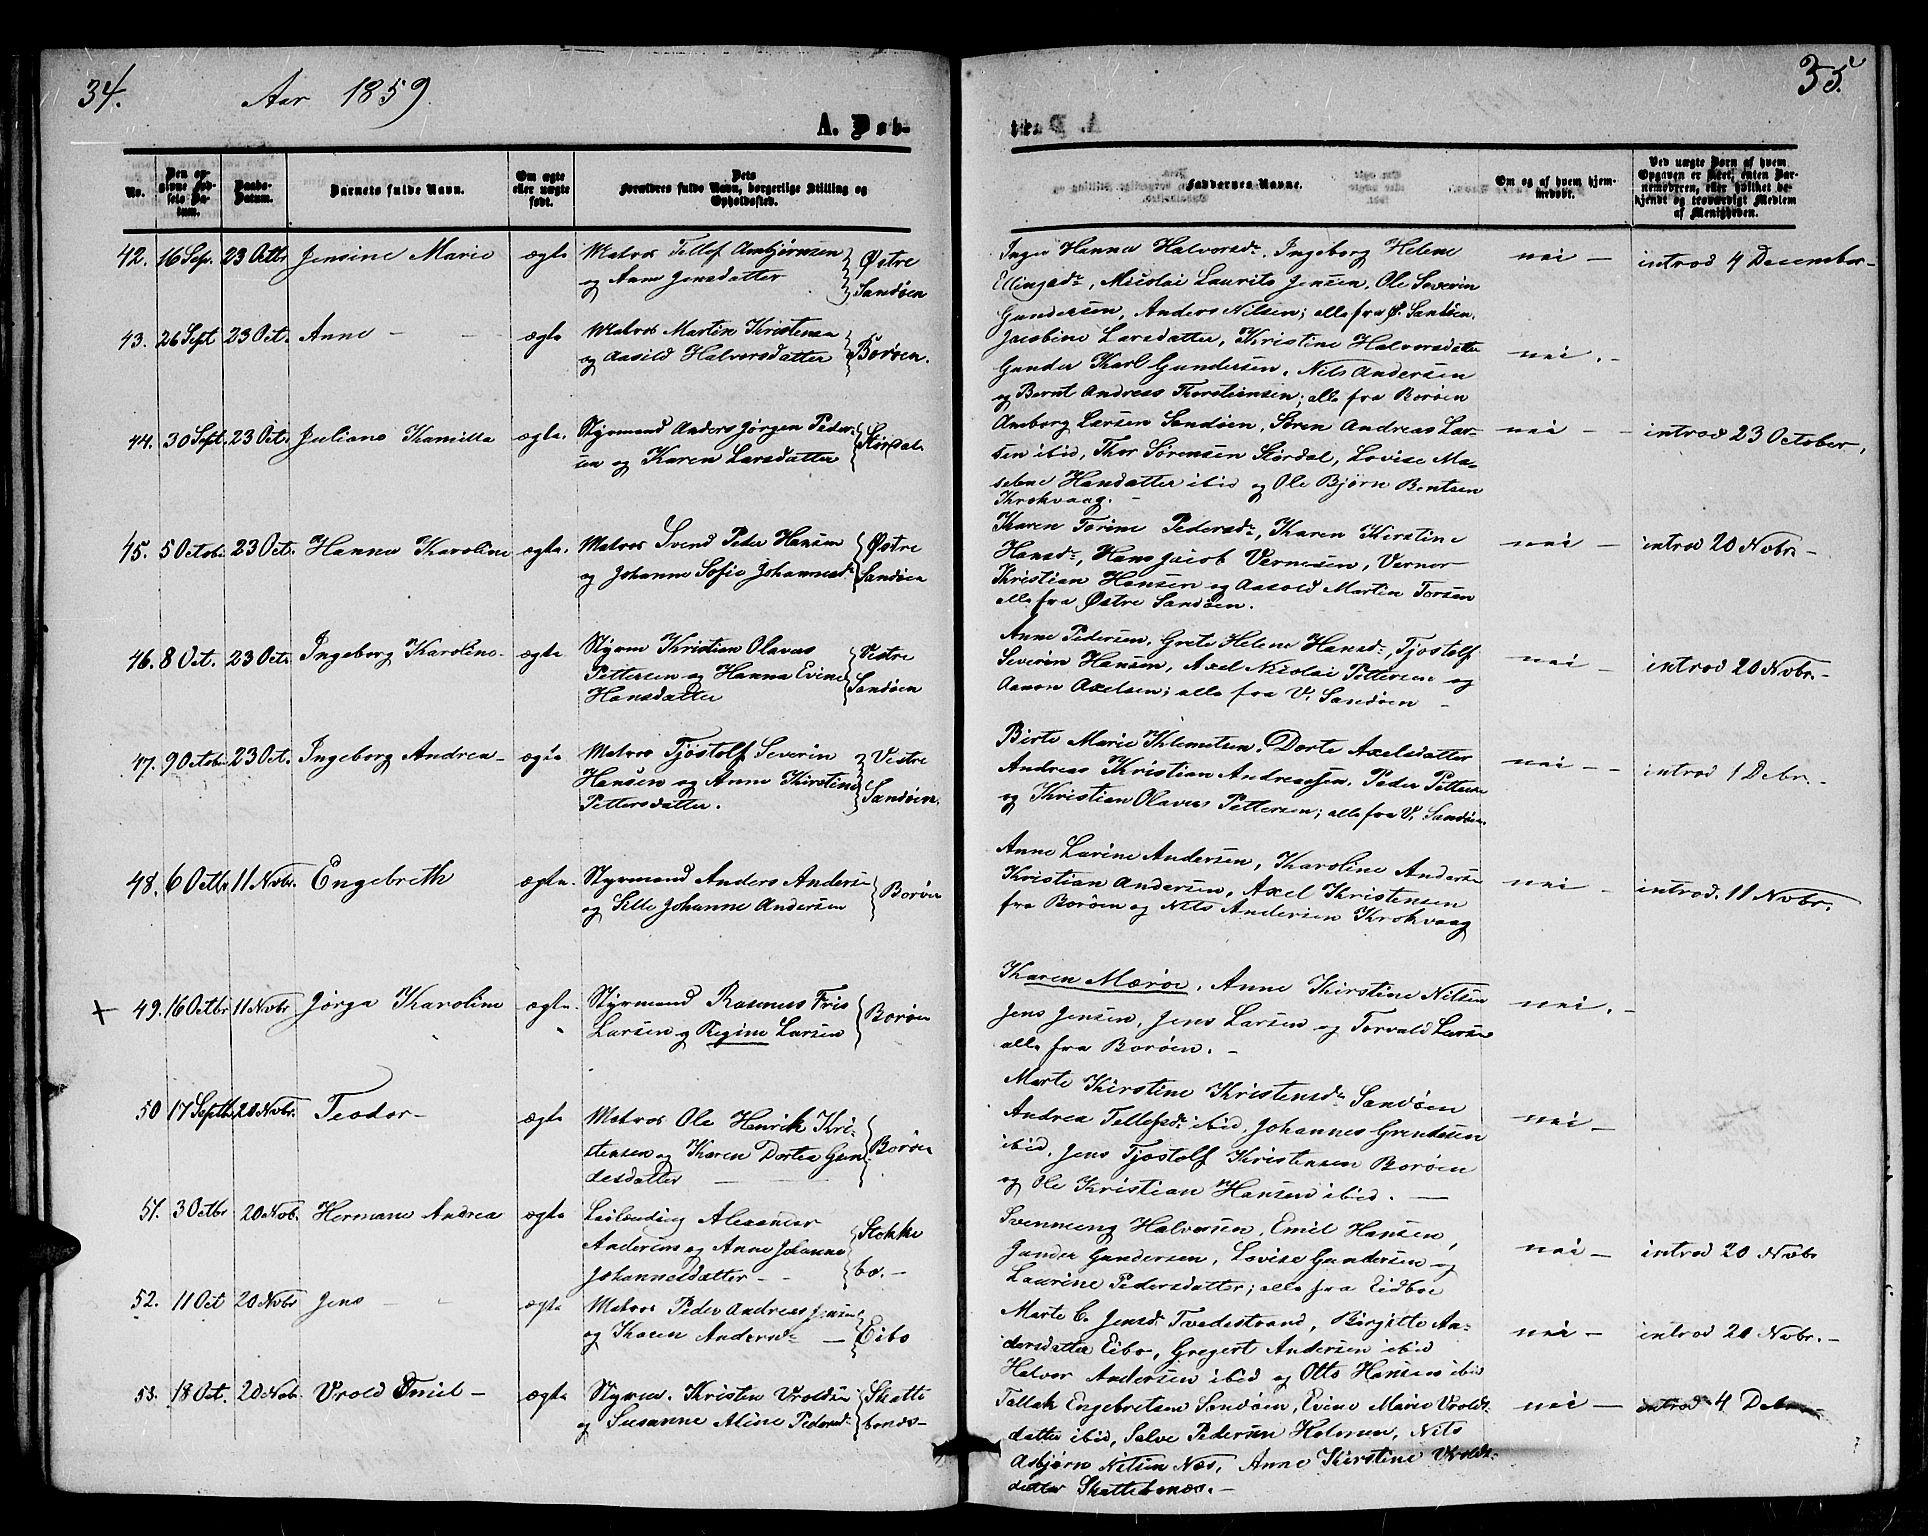 34.
Aar 1859.
A. Døb-
No.
Den opgivne Fødsels Datum.
Daabs-Datum.
Barnets fulde Navn.
Om ægte eller uægte født.
Dets Forældres fulde Navn, borgerlige Stilling og Opholdssted.
42. 16 Sep. 23 Octbr Jensine Marie ægte Matros Tellef Anbjørnsen
og Anne Jensdatter
Østre
Sandøen
43. 26 Sept 23 Oct. Anne - - ægte Matros Martin Kristensen
og Aasild Halvorsdatter
Borøen.
44. 30 Sept. 23 Oct. Juliane Kamilla ægte. Styrmand Anders Jørgen Peder-
sen og Karen Larsdatter
Størdal
45. 5 Octob. 23 Oct. Hanna Karoline ægte. Matros Svend Peder Hansen
og Johanne Sofie Johannesd.
Østre
Sandøen
46. 8 Oct. 23 Oct. Ingeborg Karoline- ægte Styrm Kristian Olavus
Pettersen og Hanna Evine
Hansdatter
Vestre
Sandøen
47. 9 Octob. 23 Oct. Ingeborg Andrea- ægte Matros Tjøstolf Severin
Hansen og Anne Kirstine
Pettersdatter.
Vestre
Sandøen.
48. 6 Octbr 11 Novbr. Engebreth ægte. Styrmand Anders Andersen
og Sille Johanne Andersen
Borøen
+ 49. 16 Octbr 11 Novbr Jørga Karoline ægte. Styrmand Rasmus Friis
Larsen og Regine Larsen
Borøen
50 17 Septb. 20 Novbr. Teodor- ægte Matros Ole Henrik Kri-
stensen og Karen Dortea Gun-
desdatter
Borøen
51. 3 Octbr 20 Nov. Hermane Andrea ægte Leilænding Alexander
Andersen og Anne Johanne
Johannesdatter -
Stokke
bo. -
52. 11 Oct 20 Novbr Jens - - ægte Matros Peder Andreas Jensen
og Karen Andersd. -
Eibo
53. 18 Oct. 20 Nov. Vrold Emil - ægte Styrm. Kristen Vroldsen
og Susanne Aline Pedersd.
Skatte
bonæs-
35.
te.
Faddernes Navne.
Om og af hvem hjemmedøbt.
Ved uægte Barn af hvem Opgaven er skeet, enten Barnemoderen, eller hvilket bekjendt og troværdigt Medlem af Menigheden.
Inger Hanna Halvorsd., Ingeborg Helene
Ellingsd., Nicolai Laurits Jensen, Ole Severin
Gundersen, Anders Nilsen; alle fra Ø. Sandøen.
nei - introd 4 December-
Jacobine Larsdatter, Kristine Halvorsdatter
Gunder Karl Gundersen, Nils Andersen
og Bernt Andreas Thorsteinsen; alle fra Borøen
nei. -
Amborg Larsen Sandøen, Søren Andreas Lar-
sen ibid, Thor Sørensen Størdal, Lovise Ma-
sebne Hansdatter ibid og Ole Bjørn Bentsen
Krokvaag. -
nei - - introd 23 October,
Karen Torine Pedersd., Karen Kirstine
Hansd., Hans Jacob Vernesen, Verner
Kristian Hansen og Aasold Martin Torsen
alle fra Østre Sandøen.
nei - introd 20 Novbr -
Anne Pedersen, Grete Helene Hansd., Tjøstolf
Severin Hansen, Axel Nicolai Pettersen og
Aanon Axelsen; alle fra V. Sandøen -
nei - introd 20 Novbr. -
Birte Marie Klemetsen, Dorte Axelsdatter
Andreas Kristian Andreassen, Peder Pettersen
og Kristian Olaves Pettersen; alle fra V. Sandøen
nei - - introd 1 Debr. -
Anne Larine Andersen, Karoline Andersen
Kristian Andersen, Axel Kristensen
fra Borøen og Nils Andersen Krokvaag
nei - introd. 11 Novbr.
Karen Mærøe, Anne Kirstine Nilsen
Jens Jensen, Jens Larsen og Torvald Larsen
alle fra Borøen. -
nei. -
Marte Kirstine Kristensd. Sandøen
Andrea Tellefsd. ibid, Johannes Grundesen
ibid, Jens Tjøstolf Kristensen Borøen
og Ole Kristian Hansen ibid. -
nei -
Svenneng Halvorsen, Emil Hansen,
Gunder Gundersen, Lovise Gundersen og
Laurine Pedersdatter; alle fra Eidboe
nei - introd 20 Novbr
Marte C. Jensd. Tvedestrand, Birgitte An-
dersdatter Eibo, Gregert Andersen ibid
Halvor Andersen ibid og Otto Hansen ibid
nei - introd 20 Novbr. -
Tallak Engebretsen Sandøen, Evine Marie Vrolds-
datter ibid, Salve Pedersen Holmen, Nils
Asbjørn Nilsen Næs, Anne Kirstine Vrolds-
datter Skattebonæs. -
nei - introd 4 Debr